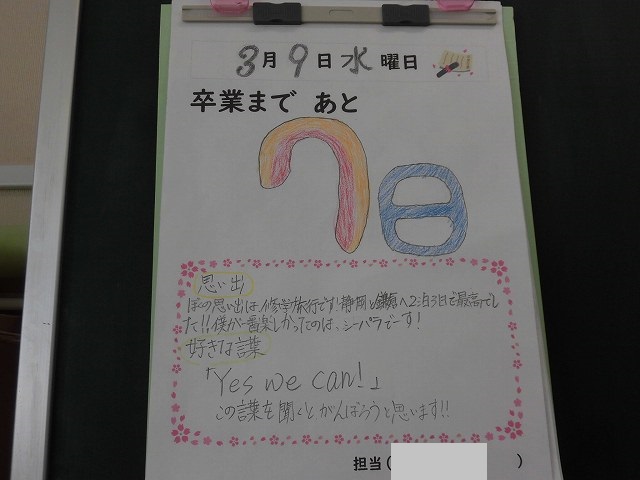 3月9日水曜日
卒業まで あと
7日
思い出
ぼくの思い出は、修学旅行です!静岡と鎌倉へ2泊3日で最高でし
た!!僕が一番楽しかったのは、シーパラでーす!
好きな言葉
「Yes we can!」
この言葉を聞くとがんばろうと思います!!
担当( )